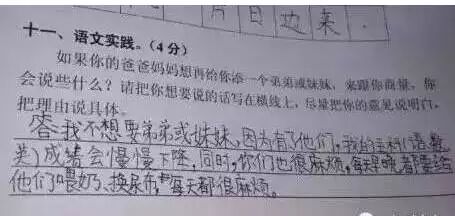 片日边来.
十一、语文实践。(4分)
如果你的爸爸妈妈想再给你添一个弟弟或妹妹，来跟你商量，你
会说些什么？请把你想要说的话写在横线上，尽量把你的意见说明白，
把理由说具体。
答：我不想要弟弟或妹妹，因为有了他们，我的主科(语数
英)成绩会慢慢下降，同时，你们也很麻烦，每早晚都要给
他们喂奶、换尿布，每天都很麻烦。